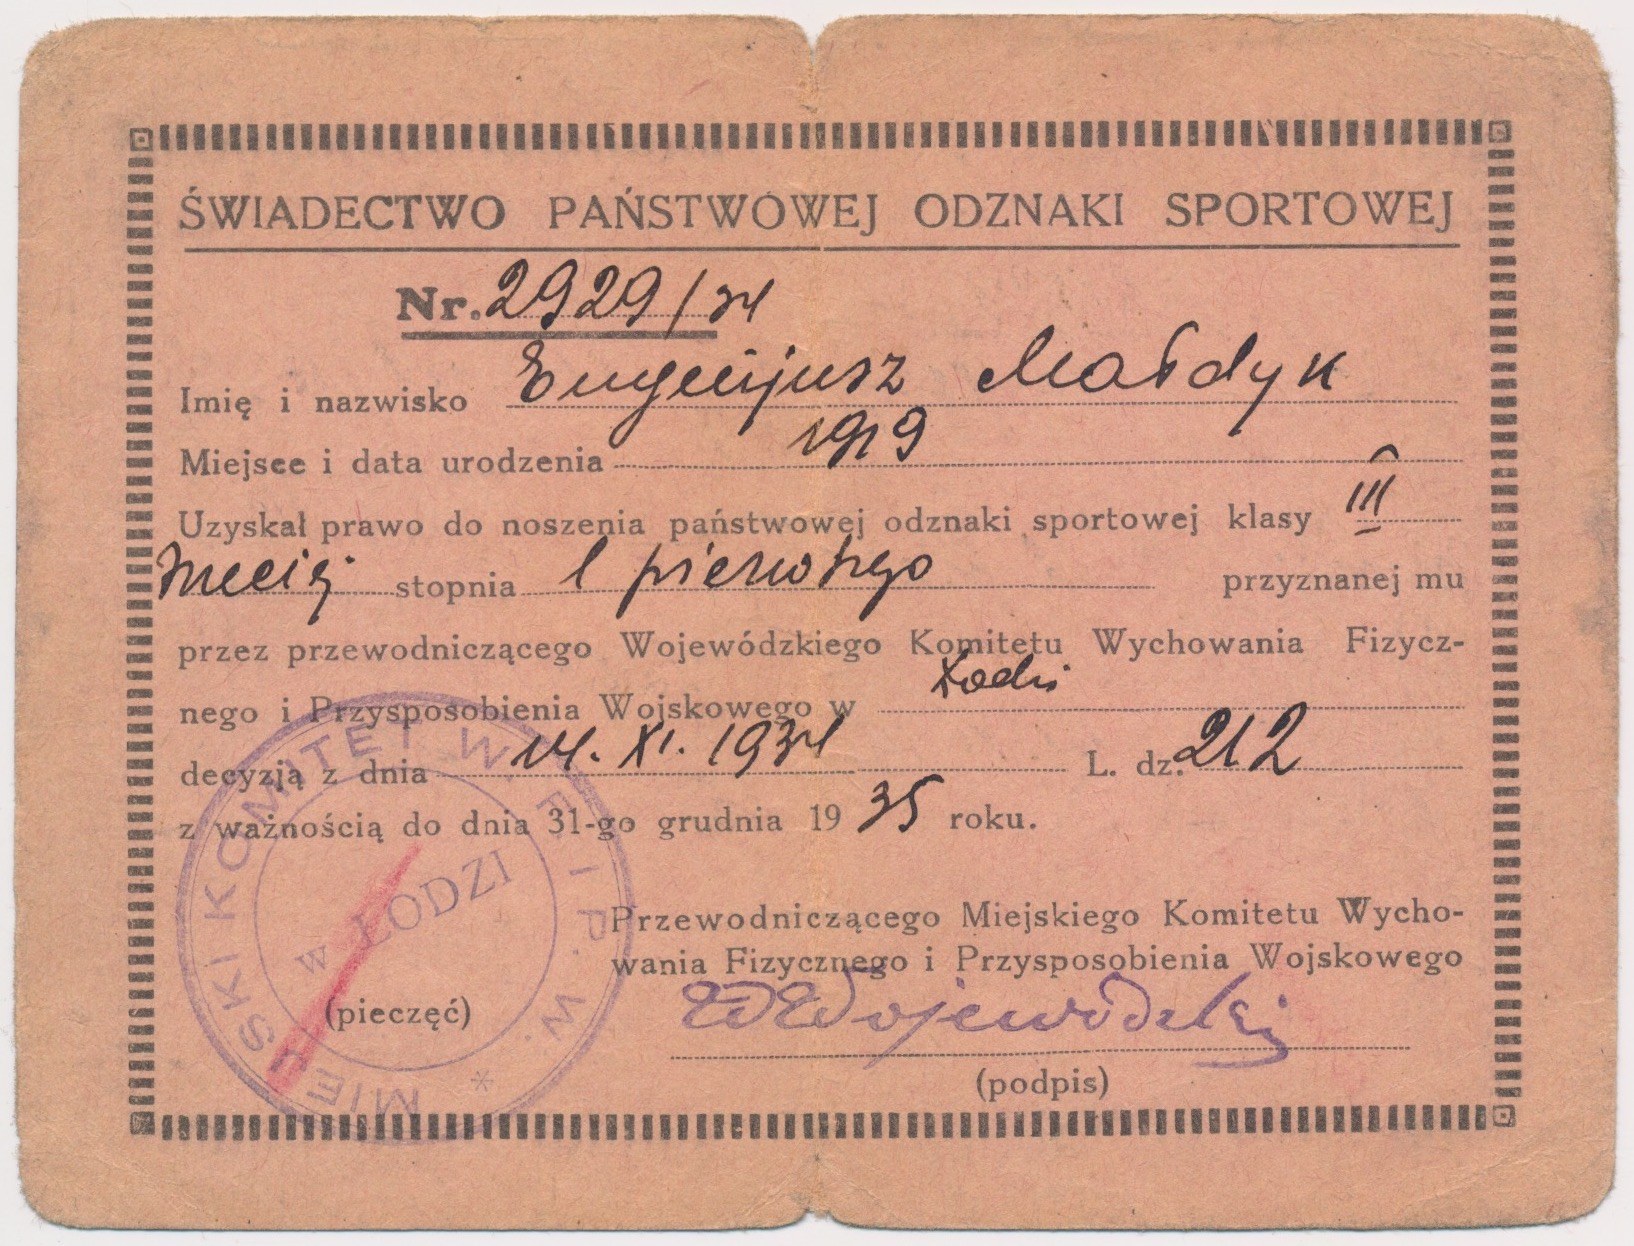 ŚWIADECTWO PAŃSTWOWEJ ODZNAKI SPORTOWEJ
Nr. 2929/34
Imię i nazwisko Eugenjusz Małdyk
Miejsce i data urodzenia 1919
Uzyskał prawo do noszenia państwowej odznaki sportowej klasy III
trzeciej stopnia I pierwszego przyznanej mu
przez przewodniczącego Wojewódzkiego Komitetu Wychowania Fizycz-
nego i Przysposobienia Wojskowego w Łodzi
decyzją z dnia 14. XI. 1934 L. dz. 212
z ważnością do dnia 31-go grudnia 1935 roku.
Przewodniczącego Miejskiego Komitetu Wycho-
wania Fizycznego i Przysposobienia Wojskowego
(pieczęć)
(podpis)
MIEJSKI KOMITET W. F. I P. W. *
w ŁODZI